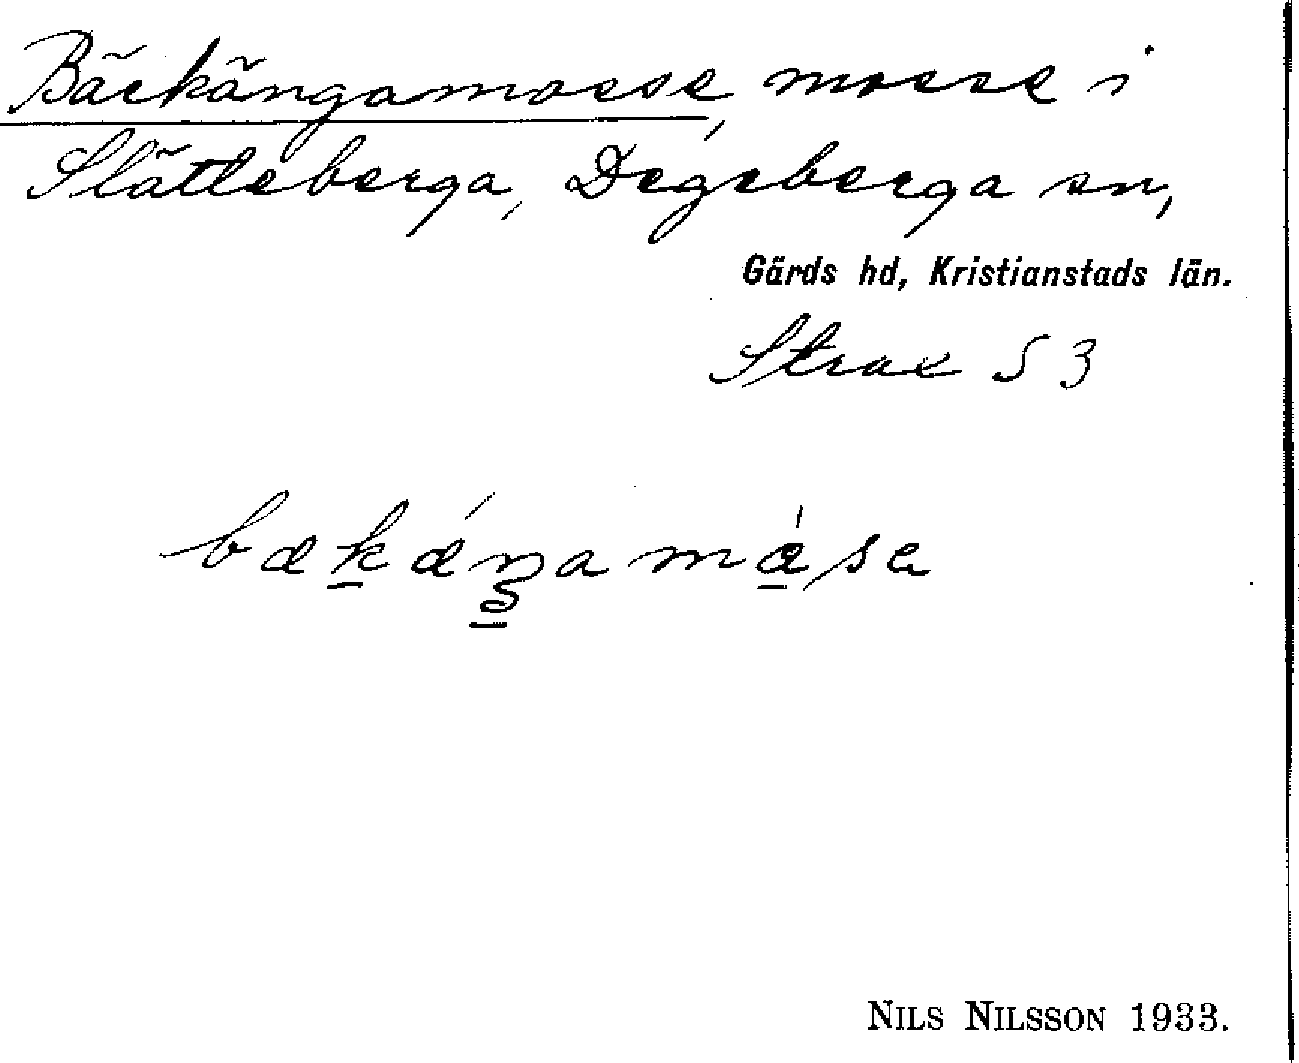 Bäckängamosse, mosse i
Slätteberga, Degeberga sn,
Gärds hd, Kristianstads län.
Strax S 3
bækǽŋamása
NILS NILSSON 1933.